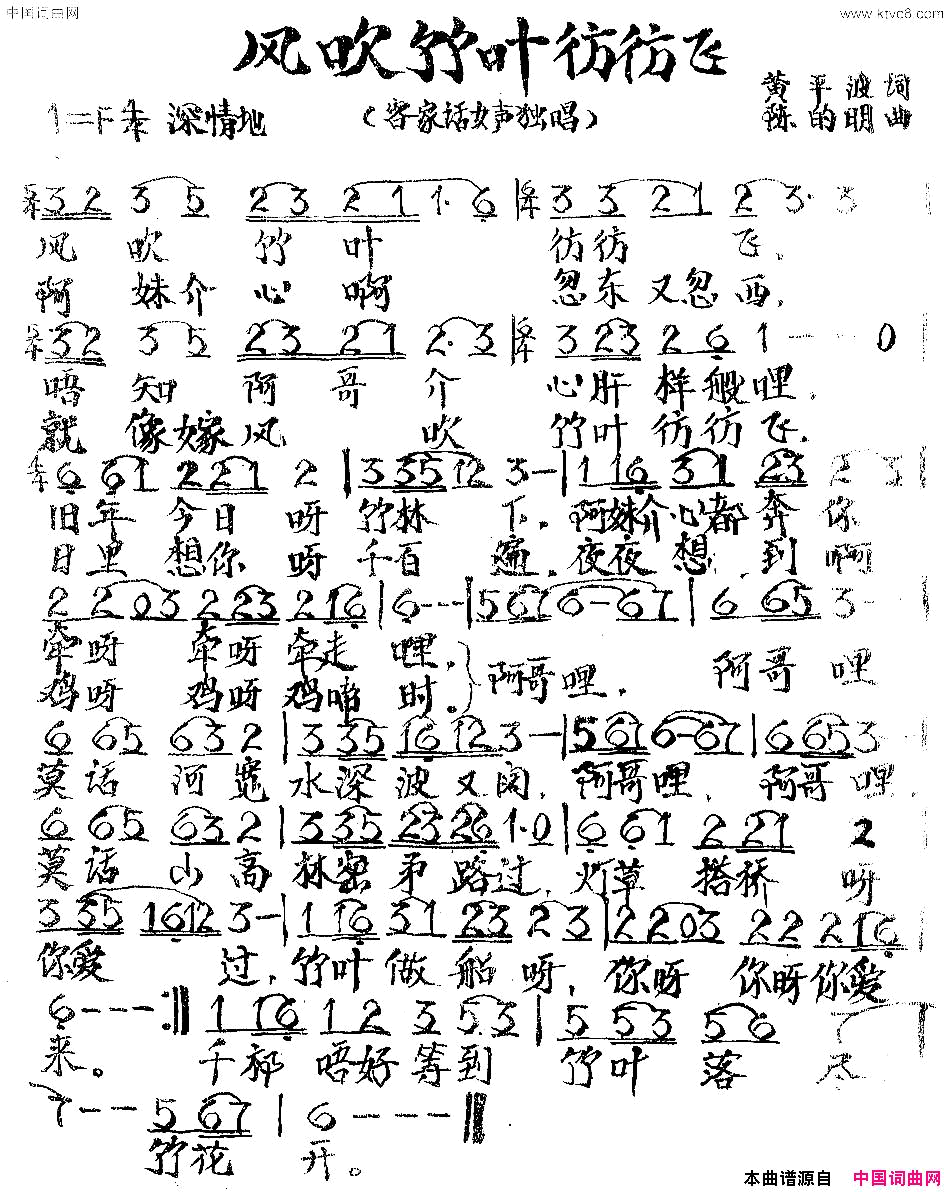 中国词曲网
www.ktvc8.com
风吹竹叶彷彷飞
黄平波词
1=F 深情地
(客家话女声独唱)
陈的明曲
3 2 3 5 2 3 2 1 1· 6 | 3 3 2 1 2 3· 3
风 吹 竹 叶 彷彷 飞,
阿 妹介 心 啊 忽东又忽西,
3 2 3 5 2 3 2 1 2· 3 | 3 2 3 2 6 1 - - 0
唔 知 阿 哥 介 心肝样般哩,
就 像嫁风 吹 竹叶彷彷飞,
6 6 1 2 2 1 2 | 3 3 5 1 2 3 - | 1 1 6 3 1 2 3 2 3
旧年 今日 呀 竹林 下,阿妹介心都奔 你
日里 想你 呀 千百 遍,夜夜 想 到 啊
2 2 0 3 2 2 3 2 1 6 | 6 - - - | 5 6 7 6 - 6 7 | 6 6 5 3 - -
牵呀 牵呀牵走 哩, 阿哥哩, 阿哥哩
鸡呀 鸡呀鸡啼 时。
6 6 5 6 3 2 | 3 3 5 1 6 1 2 3 - - | 5 6 7 6 - 6 7 | 6 6 5 3 - -
莫话 河宽 水深 波又阔,阿哥哩, 阿哥哩,
6 6 5 6 3 2 | 3 3 5 2 3 2 6 1· 0 | 6 6 1 2 2 1 2
莫话 山高 林密 路过,灯草 搭桥 呀
3 3 5 1 6 1 2 3 - | 1 1 6 3 1 2 3 2 3 | 2 2 0 3 2 2 2 1 6
你爱 过,竹叶做船呀,你呀 你呀你爱
6 - - - :‖ 1 1 6 1 2 3 5· 3 | 5 5 3 5 6 7
来。 千祁 唔好等到 竹叶 落 尽
7 - - 5 6 7 | 6 - - - ‖
竹花 开。
本曲谱源自 中国词曲网